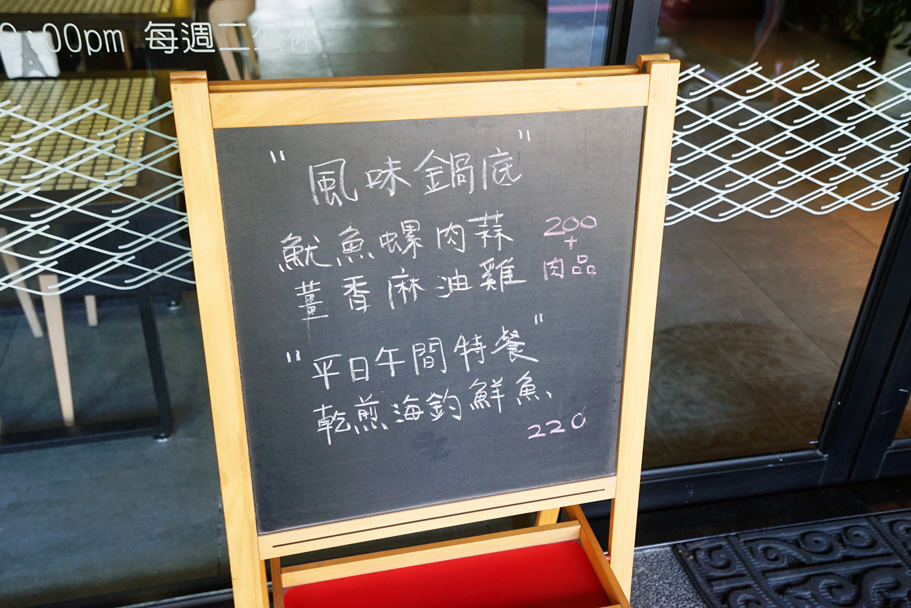 0:00pm 每週二公休
"風味鍋底"
魷魚螺肉蒜 200
+
薑香麻油雞 肉品
"平日午間特餐"
乾煎海釣鮮魚
220